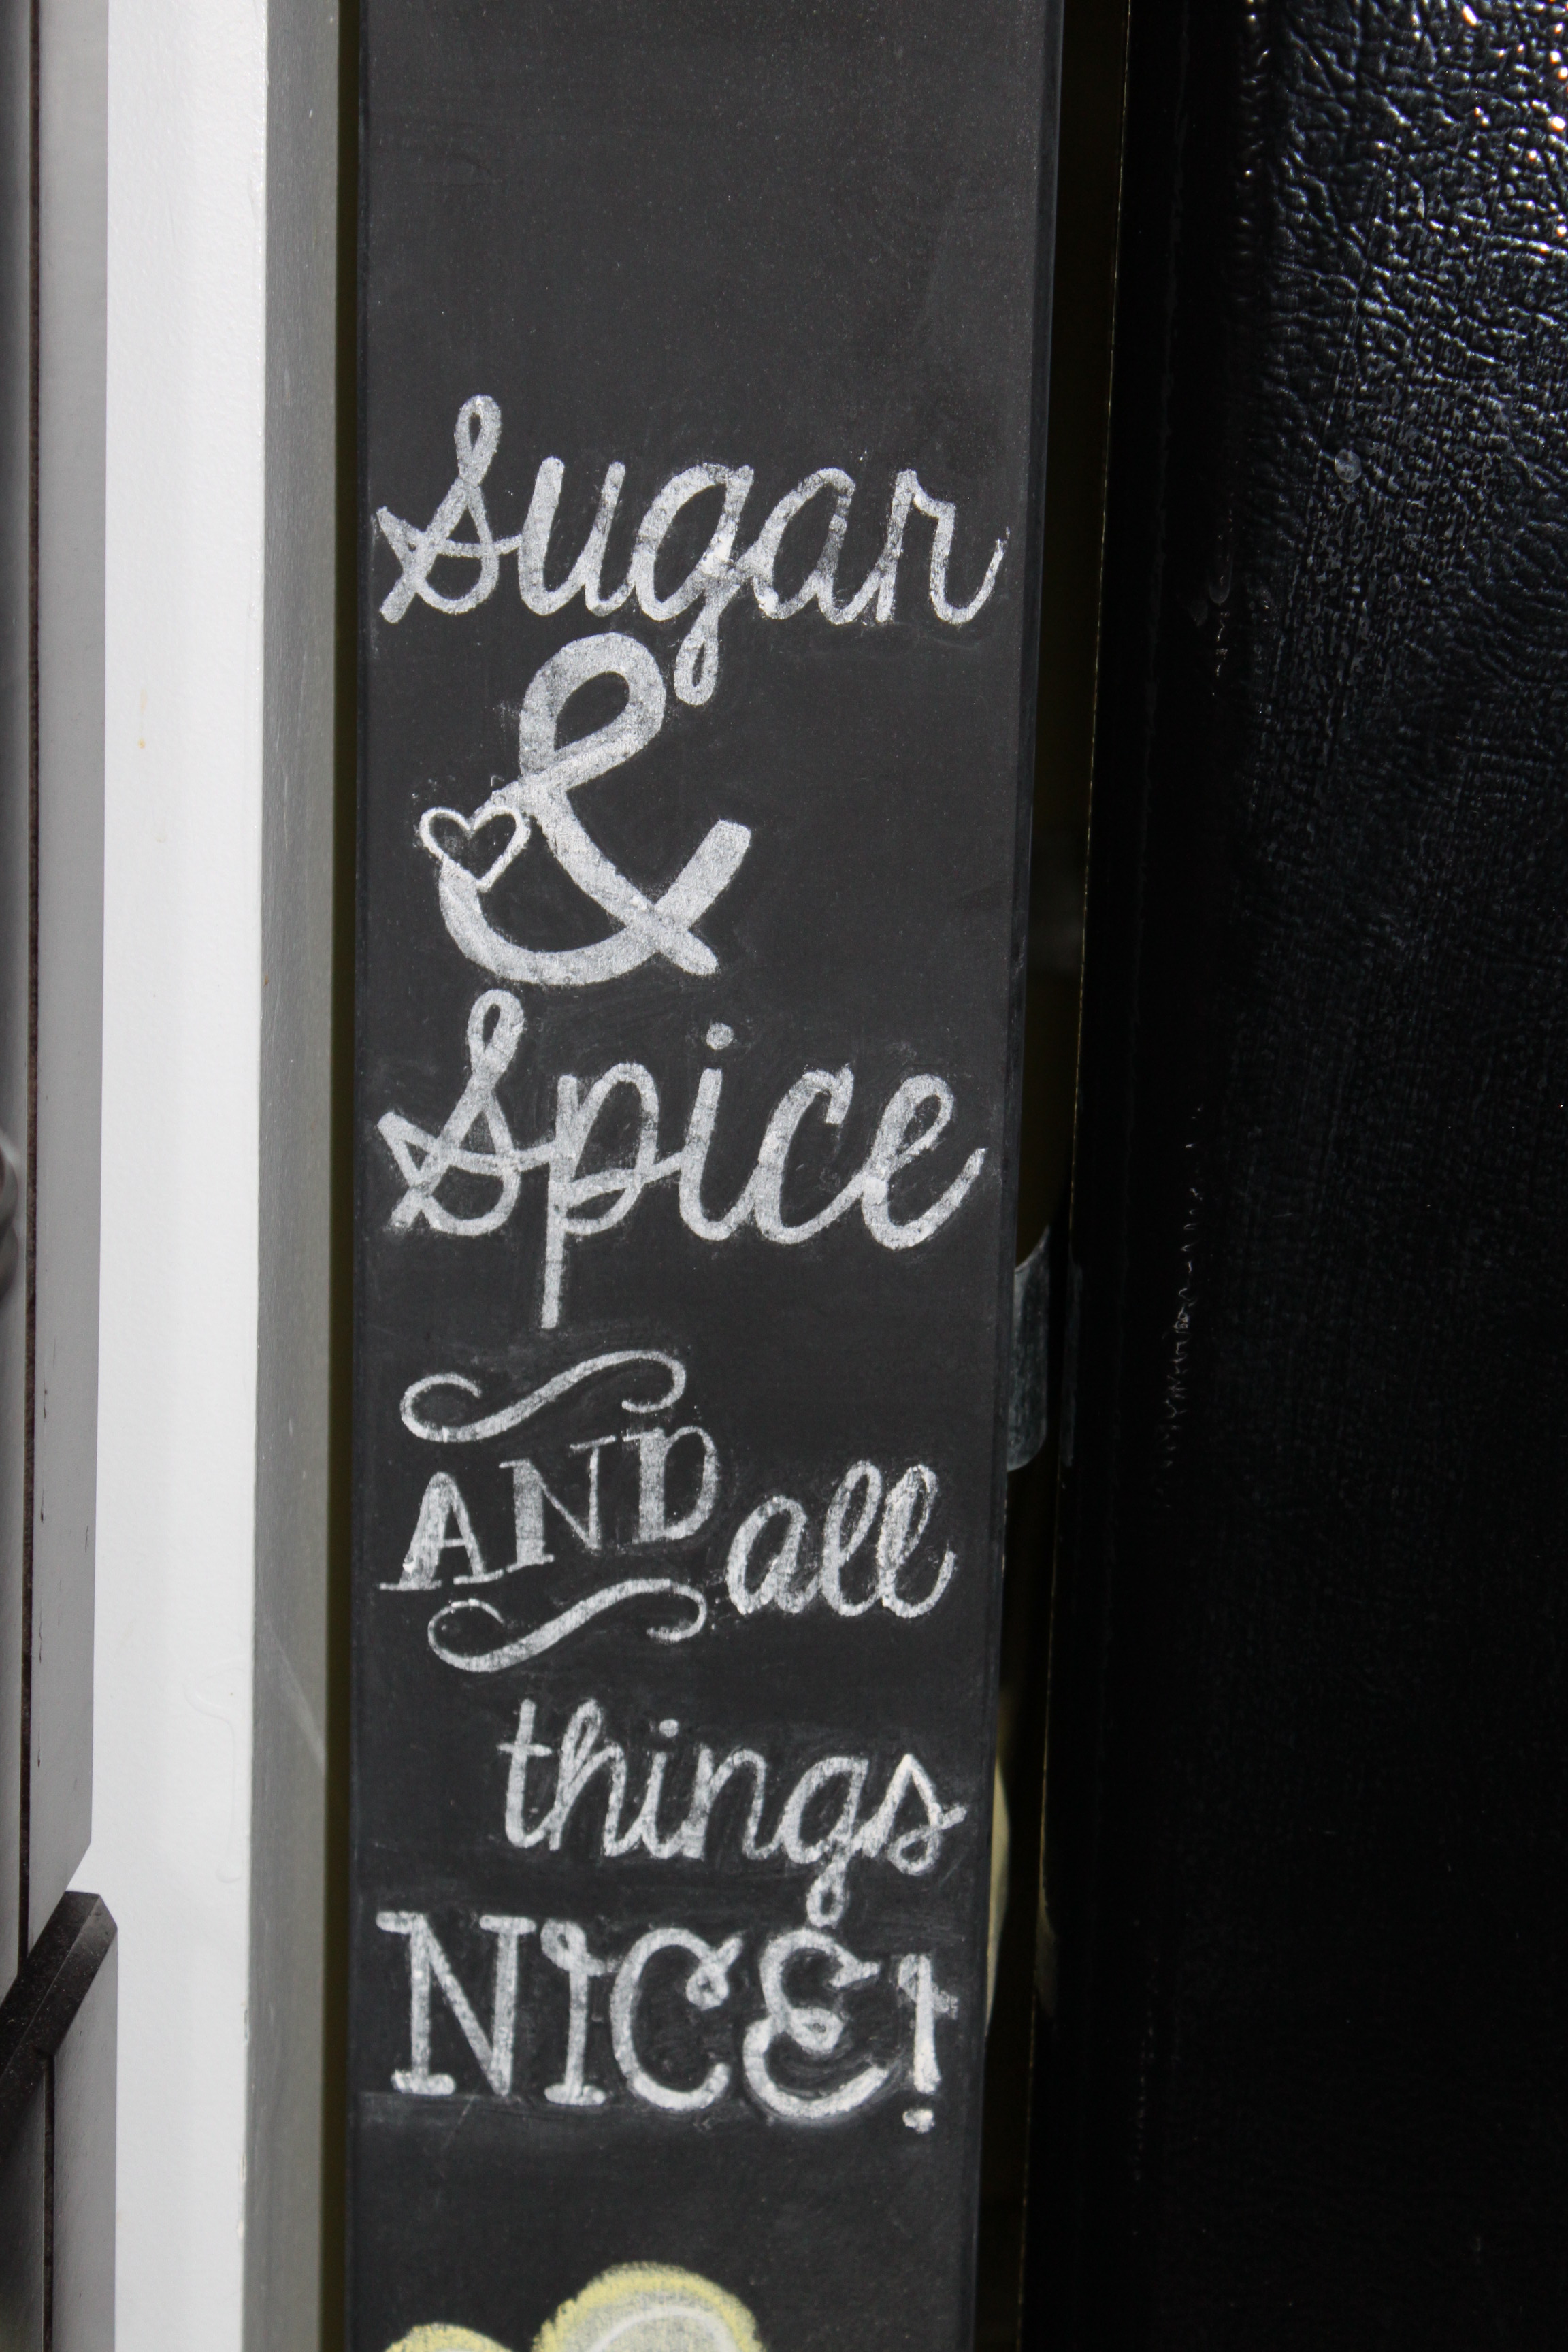 Sugar
&
Spice
AND all
things
NICE!